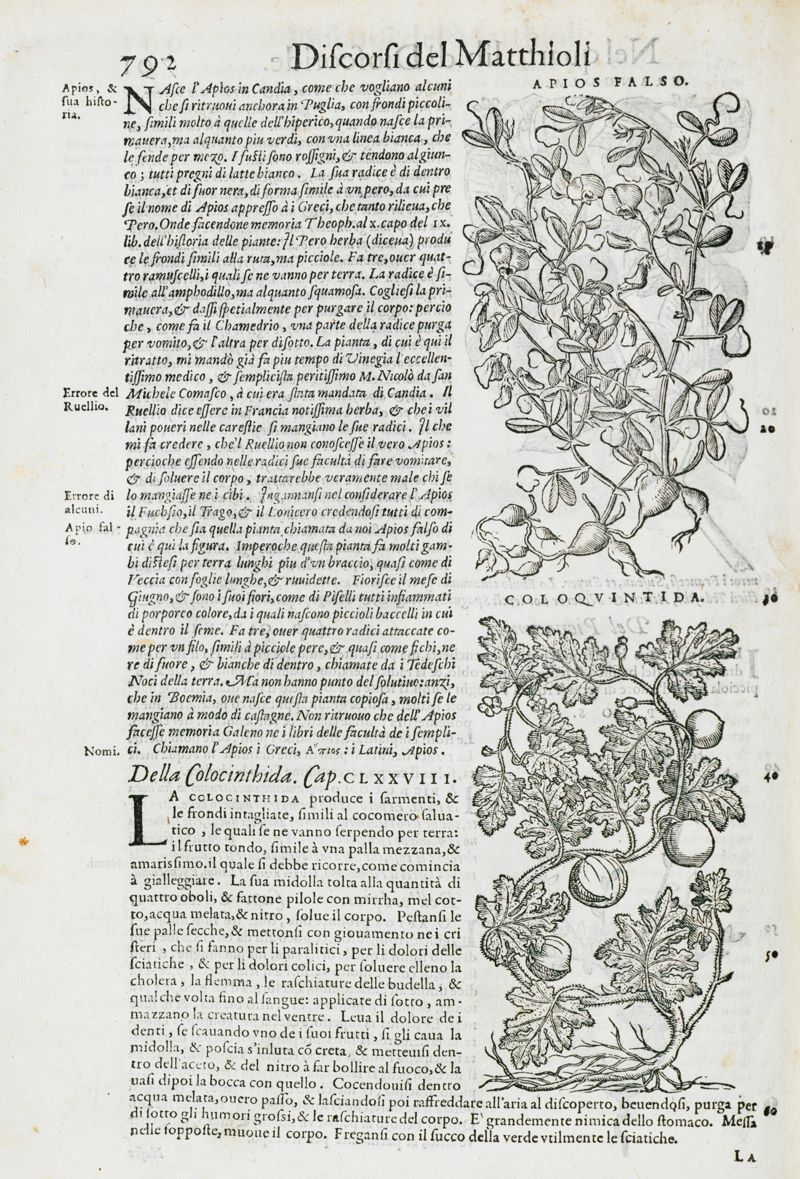 792
Diſcorſi del Matthioli
Apios, &
ſua hiſto-
ria.
NAſce l'Apios in Candia, come che vogliano alcuni
che ſi ritruoui anchora in Puglia, con frondi piccoli-
ne, ſimili molto à quelle dell'hiperico, quando naſce la pri-
mauera, ma alquanto piu verdi, con vna linea bianca, che
le fende per mezo. I fuſti ſono roſſigni, & tendono al giun-
co; tutti pregni di latte bianco. La ſua radice è di dentro
bianca, et di fuor nera, di forma ſimile à vn pero, da cui pre
ſe il nome di Apios appreſſo à i Greci, che tanto rilieua, che
Pero. Onde facendone memoria Theoph. al x. capo del ix.
lib. dell'hiſtoria delle piante: Il Pero herba (diceua) produ
ce le frondi ſimili alla ruta, ma picciole. Fa tre, ouer quat-
tro ramuſcelli, i quali ſe ne vanno per terra. La radice è ſi-
mile all'amphodillo, ma alquanto ſquamoſa. Coglieſi la pri-
mauera, & daſſi ſpetialmente per purgare il corpo: percio
che, come fà il Chamedrio, vna parte della radice purga
per vomito, & l'altra per diſotto. La pianta, di cui è qui il
ritratto, mi mandò già fa piu tempo di Vinegia l'eccellen-
tiſſimo medico, & ſempliciſta peritiſſimo M. Nicolò da ſan
Errore del
Ruellio.
Michele Comaſco, à cui era ſtata mandata di Candia. Il
Ruellio dice eſſere in Francia notiſſima herba, & che i vil
lani poueri nelle careſtie ſi mangiano le ſue radici. Il che
mi fa credere, che'l Ruellio non conoſceſſe il vero Apios:
percioche eſſendo nelle radici ſue facultà di fare vomitare,
& di ſoluere il corpo, trattarebbe veramente male chi ſe
Errore di
alcuni.
lo mangiaſſe ne i cibi. Ingannanſi nel conſiderare l'Apios
il Fuchſio, il Trago, & il Lonicero credendoſi tutti di com-
Apio fal-
ſo.
pagnia che ſia quella pianta chiamata da noi Apios falſo di
cui è qui la figura. Imperoche queſta pianta fa molti gam-
bi diſteſi per terra lunghi piu d'vn braccio, quaſi come di
Veccia con foglie lunghe, & ruuidette. Fioriſce il meſe di
Giugno, & ſono i ſuoi fiori, come di Piſelli tutti infiammati
di porporco colore, da i quali naſcono piccioli baccelli in cui
è dentro il ſeme. Fa tre, ouer quattro radici attaccate co-
me per vn filo, ſimili à picciole pere, & quaſi come fichi, ne
re di fuore, & bianche di dentro, chiamate da i Tedeſchi
Noci della terra. Ma non hanno punto del ſolutiuo: anzi,
che in Boemia, oue naſce queſta pianta copioſa, molti ſe le
mangiano à modo di caſtagne. Non ritruouo che dell'Apios
faceſſe memoria Galeno ne i libri delle facultà de i ſempli-
Nomi.
ci. Chiamano l'Apios i Greci, Ἄπιος: i Latini, Apios.
Della Colocinthida. Cap. CLXXVIII.
LA COLOCINTHIDA produce i ſarmenti, &
le frondi intagliate, ſimili al cocomero ſalua-
tico, le quali ſe ne vanno ſerpendo per terra:
il frutto tondo, ſimile à vna palla mezzana, &
amariſſimo. il quale ſi debbe ricorre, come comincia
à gialleggiare. La ſua midolla tolta alla quantità di
quattro oboli, & fattone pilole con mirrha, mel cot-
to, acqua melata, & nitro, ſolue il corpo. Peſtanſi le
ſue palle ſecche, & mettonſi con giouamento ne i cri
ſteri, che ſi fanno per li paralitici, per li dolori delle
ſciatiche, & per li dolori colici, per ſoluere elleno la
cholera, la flemma, le raſchiature delle budella, &
qualche volta fino al ſangue: applicate di ſotto, am-
mazzano la creatura nel ventre. Leua il dolore de i
denti, ſe ſcauando vno de i ſuoi frutti, ſi gli caua la
midolla, & poſcia s'inluta cō creta, & metteuiſi den-
tro dell'aceto, & del nitro à far bollire al fuoco, & la
uaſi dipoi la bocca con quello. Cocendouiſi dentro
acqua melata, ouero paſſo, & laſciandoſi poi raffreddare all'aria al diſcoperto, beuendoſi, purga per
di ſotto gli humori groſſi, & le raſchiature del corpo. E' grandemente nimica dello ſtomaco. Meſſa
nelle ſoppoſte, muoue il corpo. Freganſi con il ſucco della verde vtilmente le ſciatiche.
LA
APIOS FALSO.
20
COLOQVINTIDA.
30
40
50
60